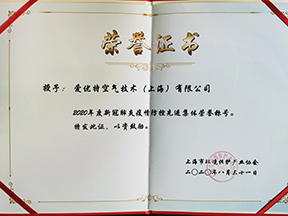 荣誉证书
授予：爱优特空气技术（上海）有限公司
2020年度新冠肺炎疫情防控先进集体荣誉称号。
特发此证，以资鼓励。
上海市环境保护产业协会
二〇二〇年八月三十一日